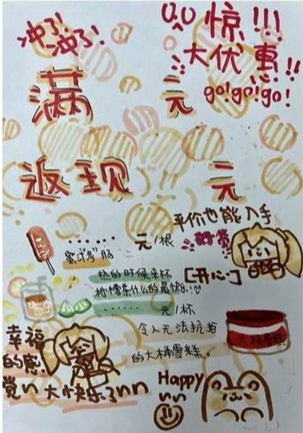 冲了!
冲了!
惊!!!
大优惠!!
go!go!go!
满 元
返现 元
平价也能入手
元/根
蜜汁烤肠
[开心~]
热的时候来杯
柠檬茶什么的最棒!
元/杯
令人无法抗拒
的大桶雪糕。
大桶雪糕
幸福
的感
觉
大快乐了
Happy